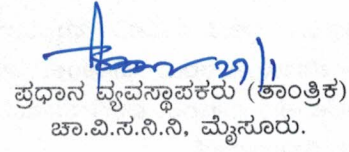 27/1
ಪ್ರಧಾನ ವ್ಯವಸ್ಥಾಪಕರು (ತಾಂತ್ರಿಕ)
ಚಾ.ವಿ.ಸ.ನಿ.ನಿ, ಮೈಸೂರು.